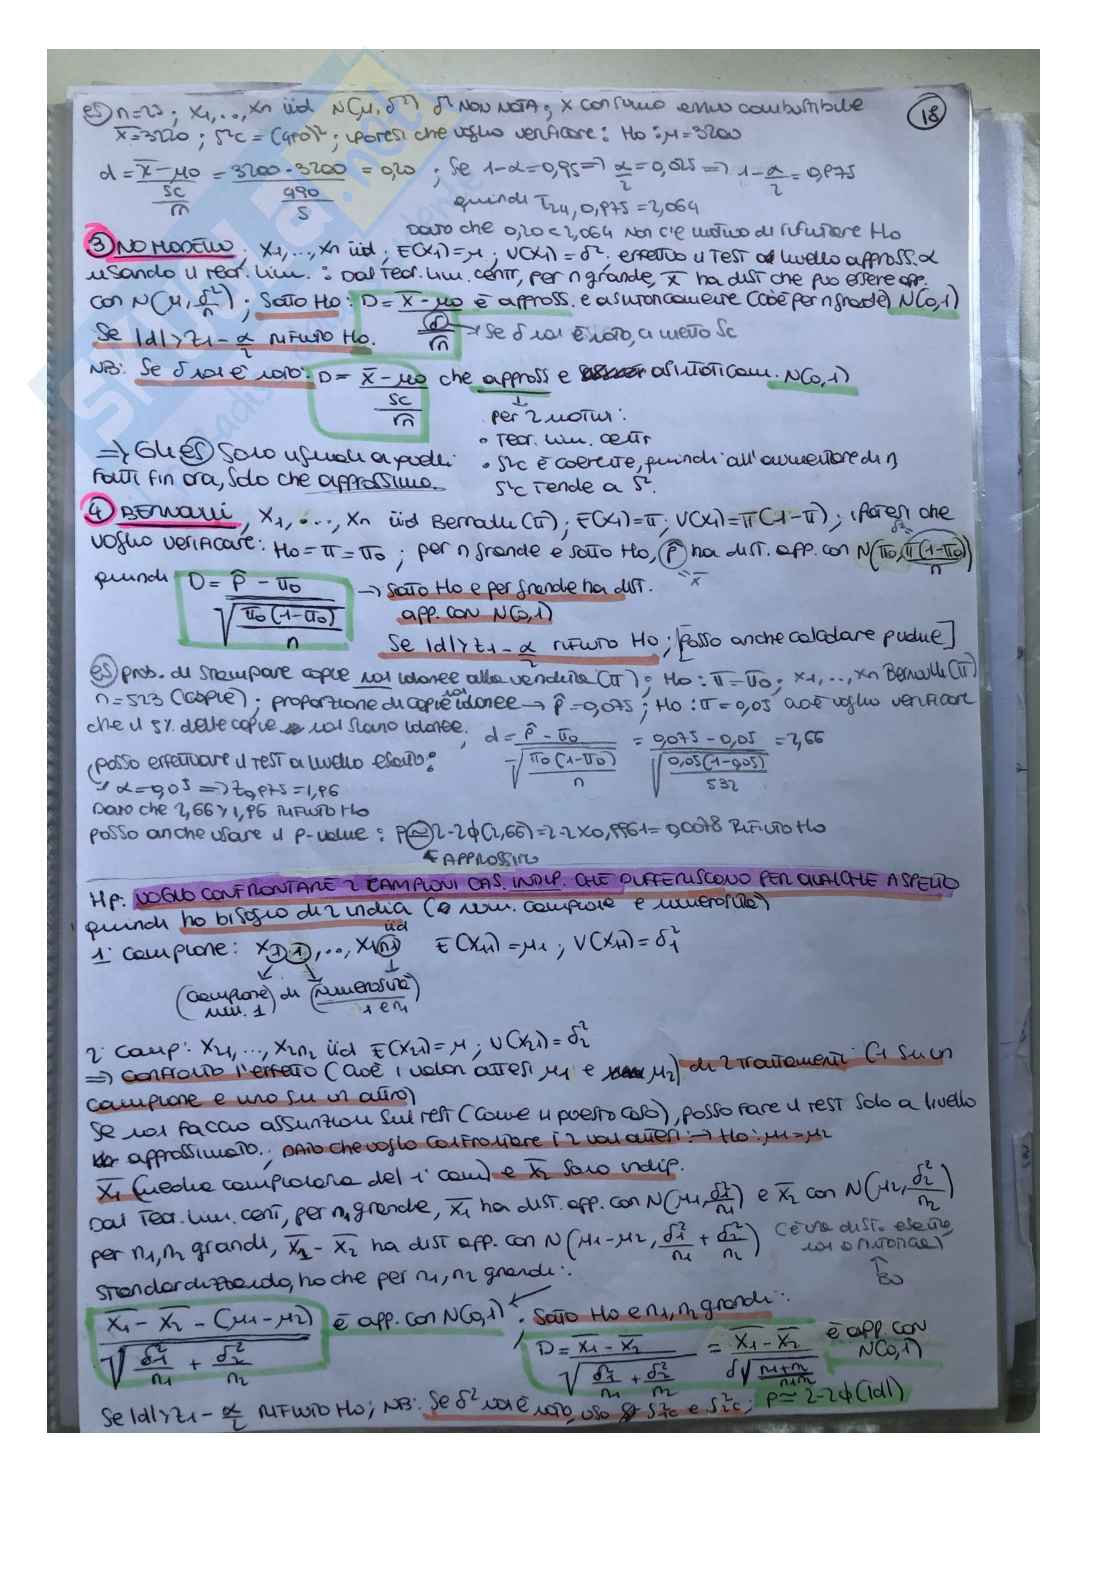 18
es) n=25; X1,..,Xn iid N(μ,δ²) δ² NON NOTA; X consumo annuo combustibile
X̄=3220; S²c=(490)²; ipotesi che voglio verificare: H0: μ=3200
d = (X̄-μ0)/(Sc/√n) = (3220-3200)/(490/5) = 0,20; Se 1-α=0,95 => α/2=0,025 => 1-α/2=0,975
quindi T24,0,975=2,064
Dato che 0,20<2,064 non c'è motivo di rifiutare H0
③ NO MODELLO, X1,..,Xn iid; E(X1)=μ, V(X1)=δ²; effettuo il test a livello appross. α
usando il teor. lim.: Dal teor. lim. centr, per n grande, X̄ ha dist che può essere app.
con N(μ, δ²/n); Sotto H0: D = (X̄-μ0)/(δ/√n) è appross. e asintoticamente (cioè per n grande) N(0,1)
Se |d|>z1-α/2 rifiuto H0. → Se δ non è noto, ci metto Sc
NB: Se δ non è noto: D = (X̄-μ0)/(Sc/√n) che appross e asintoticam. N(0,1)
↓ per 2 motivi:
• teor. lim. centr
=> Gli es) sono uguali a quelli • S²c è coerente, quindi all'aumentare di n
fatti fin ora, solo che approssimo. S²c tende a δ².
④ BERNOULLI, X1,..., Xn iid Bernoulli(π); E(X1)=π; V(X1)=π(1-π); ipotesi che
voglio verificare: H0=π=π0; per n grande e sotto H0, p̂ ha dist. app. con N(π0, π(1-π0)/n)
" X̄ δ²
quindi D = (p̂-π0)/√(π0(1-π0)/n) → Sotto H0 e per grande ha dist.
app. con N(0,1)
Se |d|>z1-α/2 rifiuto H0; [posso anche calcolare pvalue]
es) prob. di stampare copie non idonee alla vendita (π); H0: π=π0; X1,..,Xn Bernoulli(π)
n=523 (copie); proporzione di copie non idonee → p̂=0,075; H0: π=0,05 cioè voglio verificare
che il 5% delle copie non siano idonee. d = (p̂-π0)/√(π0(1-π0)/n) = (0,075-0,05)/√(0,05(1-0,05)/532) = 2,66
(posso effettuare il test a livello esatto:
↳ α=0,05 => z0,975=1,96
Dato che 2,66>1,96 rifiuto H0
posso anche usare il p-value: p≃2-2ϕ(2,66)=2-2×0,9961=0,0078 Rifiuto H0
↞ APPROSSIMO
Hp: VOGLIO CONFRONTARE 2 CAMPIONI CAS. INDIP. CHE DIFFERISCONO PER QUALCHE ASPETTO
quindi ho bisogno di 2 indici (num. campione e numerosità)
1° campione: X11,..,X1n1 iid E(X11)=μ1; V(X11)=δ1²
(campione num. 1) di (numerosità 1 e n1)
2° camp: X21,..,X2n2 iid E(X21)=μ; V(X21)=δ2²
=> confronto l'effetto (cioè i valori attesi μ1 e μ2) di 2 trattamenti (1 su un
campione e uno su un altro)
Se non faccio assunzioni sul test (come in questo caso), posso fare il test solo a livello
approssimato.; DATO che voglio confrontare i 2 val. attesi: → H0: μ1=μ2
X̄1 (media campionaria del 1° cam) e X̄2 sono indip.
Dal Teor. lim. cent, per n1 grande, X̄1 ha dist. app. con N(μ1, δ1²/n1) e X̄2 con N(μ2, δ2²/n2)
per n1,n2 grandi, X̄1-X̄2 ha dist app. con N(μ1-μ2, δ1²/n1 + δ2²/n2)
standardizzando, ho che per n1,n2 grandi:
(X̄1-X̄2-(μ1-μ2))/√(δ1²/n1 + δ2²/n2) è app. con N(0,1); Sotto H0 e n1,n2 grandi:
D = (X̄1-X̄2)/√(δ1²/n1 + δ2²/n2) = (X̄1-X̄2)/(δ√((n1+n2)/(n1n2))) è app. con N(0,1)
Se |d|>z1-α/2 rifiuto H0; NB: Se δ² non è noto, uso S²1c e S²2c; p≃2-2ϕ(|d|)